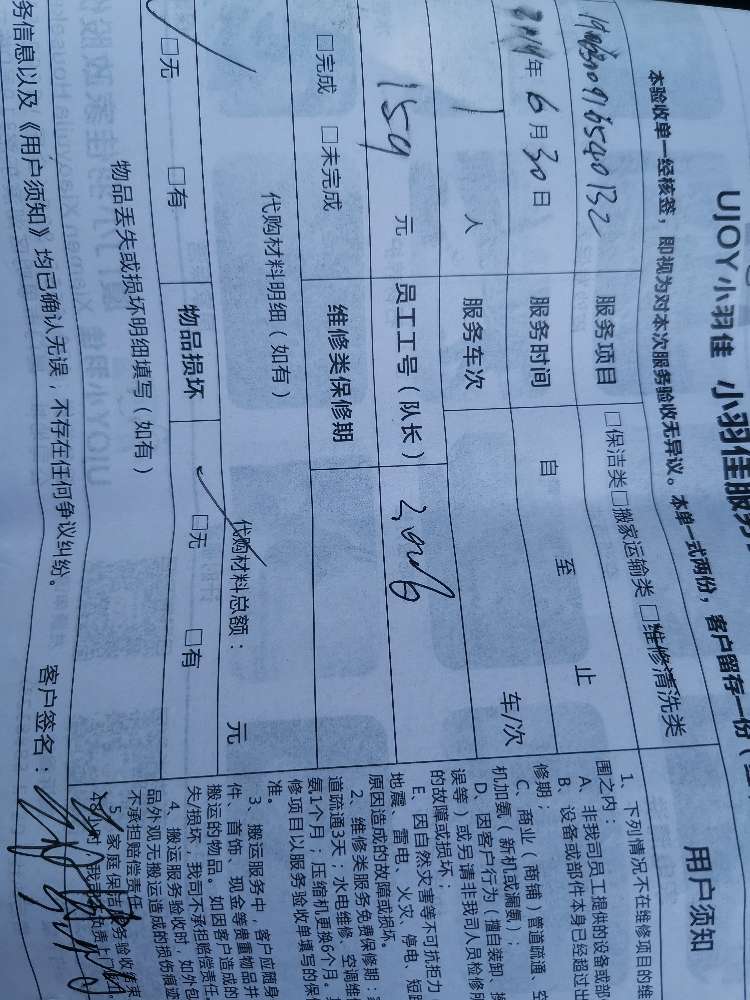 UJOY小羽佳 小羽佳服务
本验收单一经核签，即视为对本次服务验收无异议。本单一式两份，客户留存一份
服务项目 □保洁类□搬家运输类 □维修清洗类
年6月30日 服务时间 自 至 止
1 人 服务车次 车/次
159 元 员工工号（队长）
□完成 □未完成 维修类保修期
代购材料明细（如有） 代购材料总额： 元
□无 □有 物品损坏 □无 □有
物品丢失或损坏明细填写（如有）
务信息以及《用户须知》均已确认无误，不存在任何争议纠纷。 客户签名：
用户须知
1、下列情况不在维修项目的维
围之内：
A、非我司员工提供的设备或部
B、设备或部件本身已经超过出
修期；
C、商业（商铺）管道疏通、空
机加氨（新机或漏氨）；
D、因客户行为（擅自装卸、
误等）或另请非我司人员检修
的故障或损坏；
E、因自然灾害等不可抗拒力
地震、雷电、火灾、停电、短路
原因造成的故障或损坏。
2、维修类服务免费保修期：
道疏通3天；水电维修、空调维
氨1个月；压缩机更换6个月。
修项目以服务验收单填写的保
准。
3、搬运服务中，客户应随身
件、首饰、现金等贵重物品并
搬运的物品。如因客户造成的
失/损坏，我司不承担赔偿责任
4、搬运服务验收时，如外包
品外观无搬运造成的损伤痕迹
不承担赔偿责任
5、家庭保洁服务验收结束